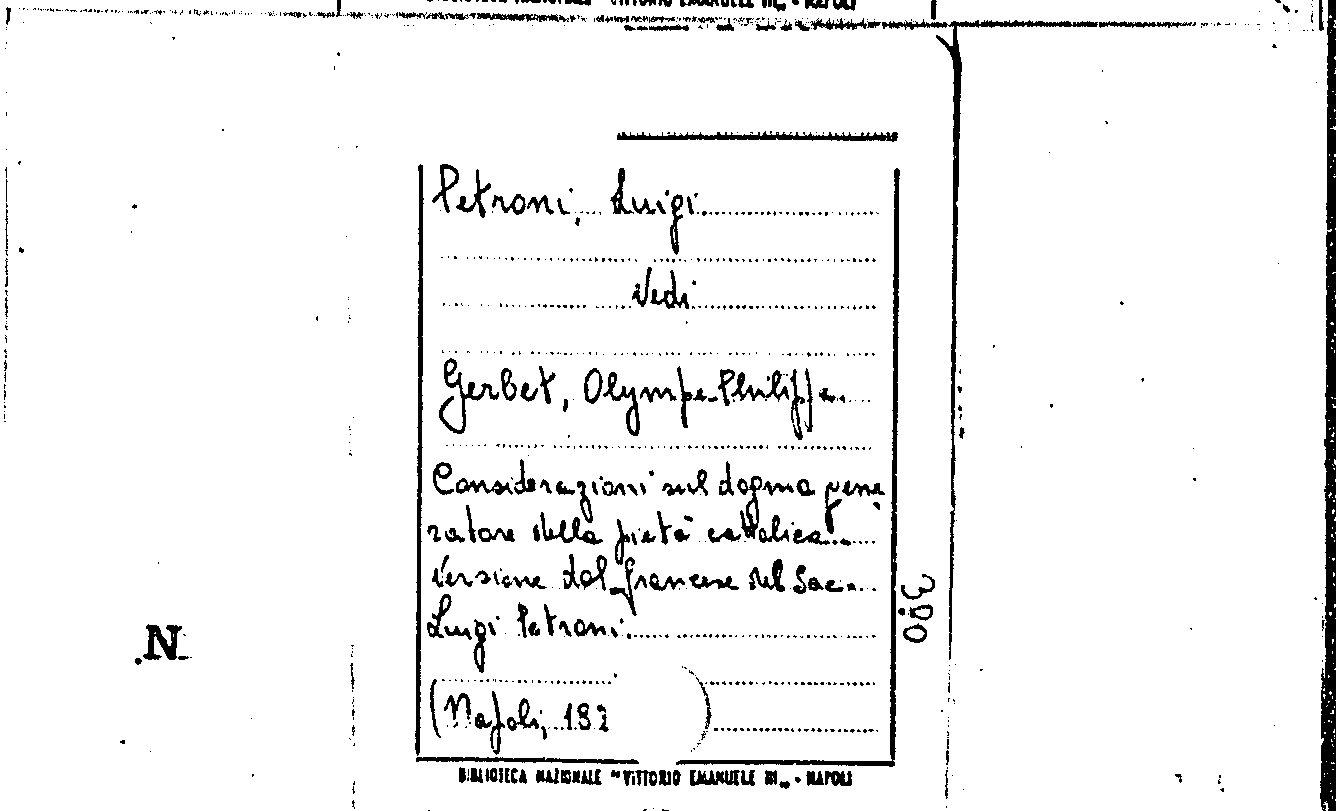 BIBLIOTECA NAZIONALE "VITTORIO EMANUELE III„ - NAPOLI
Petroni, Luigi
Vedi
Gerbet, Olympe-Philippe
Considerazioni sul dogma gene
ratore della pietà cattolica
Versione dal francese del Sac.
Luigi Petroni.
(Napoli, 183 )
380
N
BIBLIOTECA NAZIONALE "VITTORIO EMANUELE III„ - NAPOLI